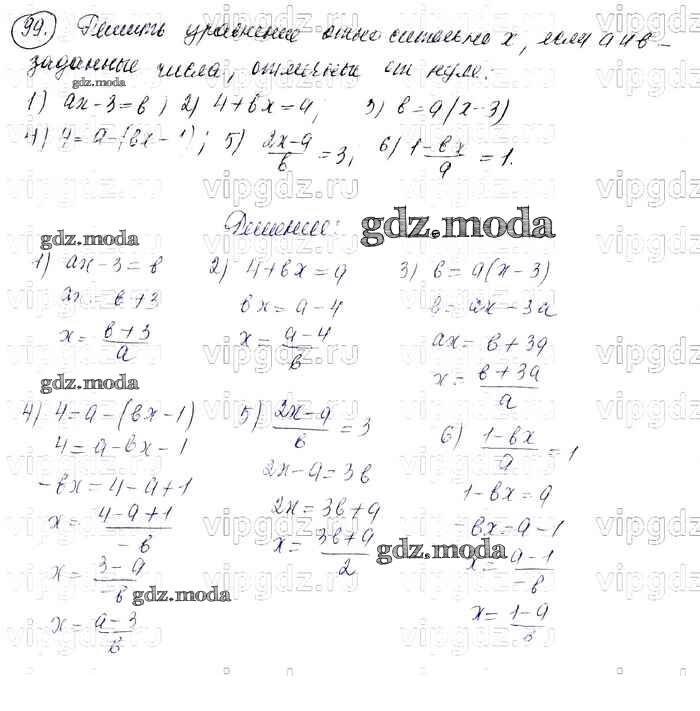 99. Решить уравнение относительно x, если a и в –
заданные числа, отличные от нуля.
gdz.moda
1) ax-3=в; 2) 4+вx=a; 3) в=a(x-3)
4) 4=a-(вx-1); 5) \frac{2x-a}{в}=3; 6) \frac{1-вx}{a}=1.
Решение:
gdz.moda
gdz.moda
1) ax-3=в
ax=в+3
x=\frac{в+3}{a}
2) 4+вx=a
вx=a-4
x=\frac{a-4}{в}
3) в=a(x-3)
в=ax-3a
ax=в+3a
x=\frac{в+3a}{a}
gdz.moda
4) 4=a-(вx-1)
4=a-вx-1
-вx=4-a+1
x=\frac{4-a+1}{-в}
x=\frac{3-a}{-в}
gdz.moda
x=\frac{a-3}{в}
5) \frac{2x-a}{в}=3
2x-a=3в
2x=3в+a
x=\frac{3в+a}{2}
gdz.moda
6) \frac{1-вx}{a}=1
1-вx=a
-вx=a-1
x=\frac{a-1}{-в}
x=\frac{1-a}{в}
vipgdz.ru